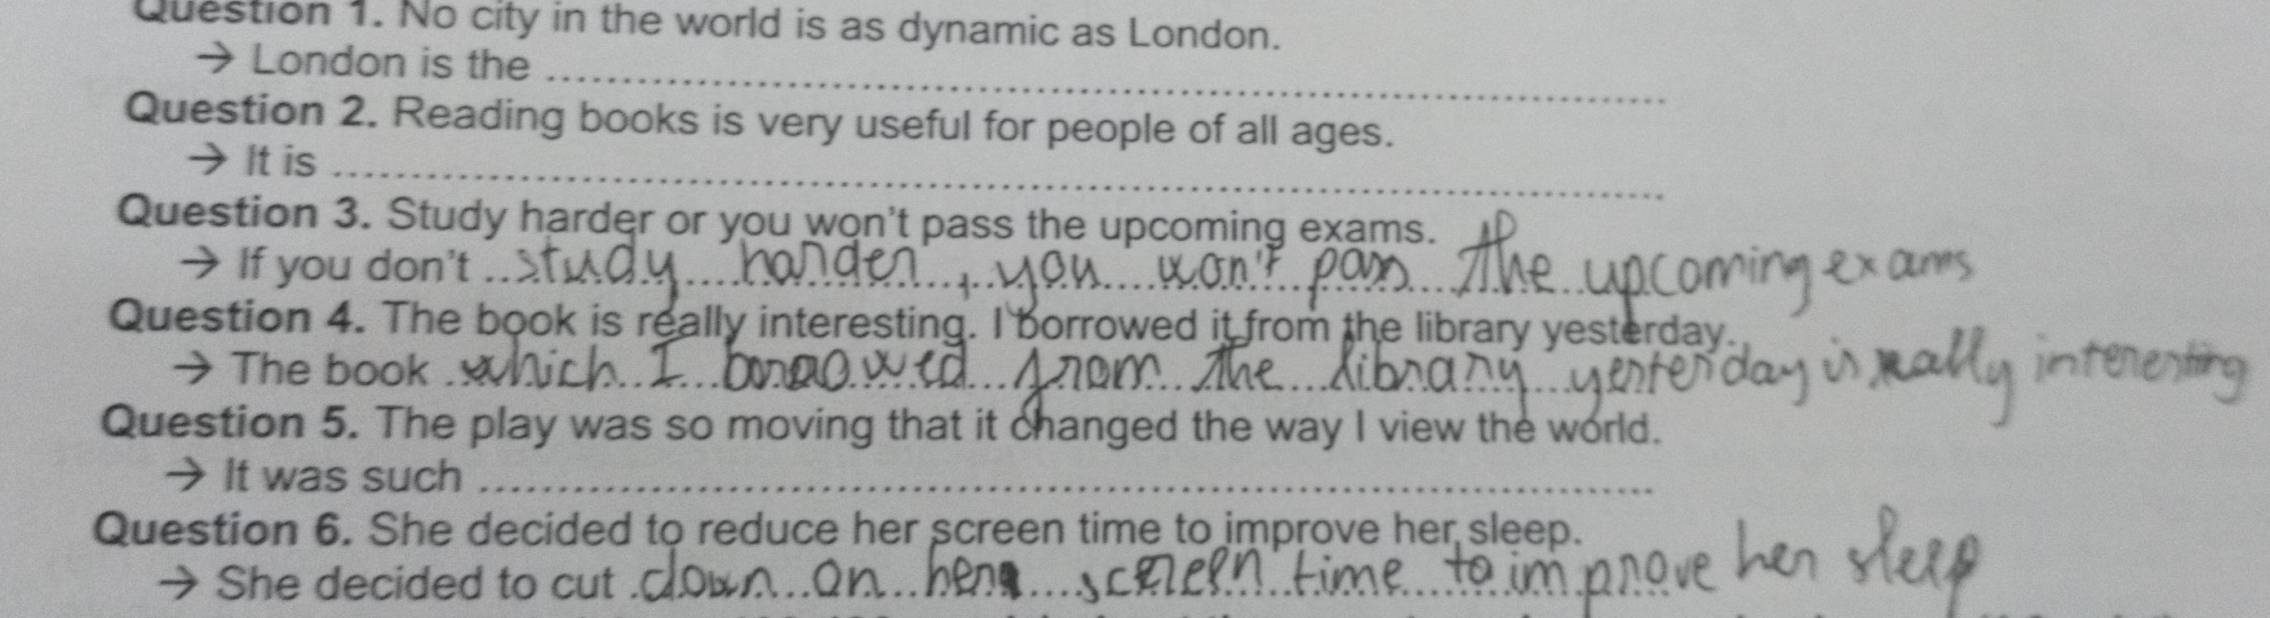 Question 1. No city in the world is as dynamic as London.
→ London is the ....................
Question 2. Reading books is very useful for people of all ages.
→ It is ....................
Question 3. Study harder or you won't pass the upcoming exams.
→ If you don't study harder, you won't pass the upcoming exams
Question 4. The book is really interesting. I borrowed it from the library yesterday.
→ The book which I borrowed from the library yesterday is really interesting
Question 5. The play was so moving that it changed the way I view the world.
→ It was such ....................
Question 6. She decided to reduce her screen time to improve her sleep.
→ She decided to cut down on her screen time to improve her sleep